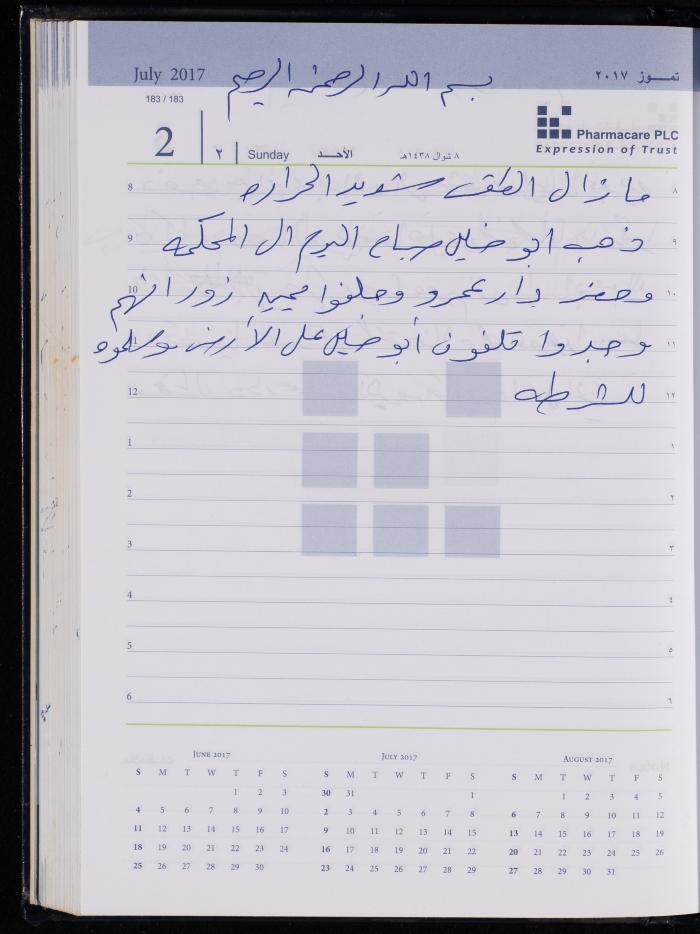 July 2017
بسم الله الرحمن الرحيم
تمـــوز ٢٠١٧
183 / 183
2
٢
Sunday
الأحـــد
٨ شوال ١٤٣٨هـ
Pharmacare PLC
Expression of Trust
8 ما زال الطقس شديد الحراره ٨
9 ذهب ابو خليل صباح اليوم الى المحكمه ٩
10 وحضر دار عمرو وحلفوا يمين زور انهم ١٠
11 وجدوا تلفون أبو خليل على الأرض وسلموه ١١
12 للشرطه ١٢
1 ١
2 ٢
3 ٣
4 ٤
5 ٥
6 ٦
JUNE 2017
S M T W T F S
1 2 3
4 5 6 7 8 9 10
11 12 13 14 15 16 17
18 19 20 21 22 23 24
25 26 27 28 29 30
JULY 2017
S M T W T F S
30 31 1
2 3 4 5 6 7 8
9 10 11 12 13 14 15
16 17 18 19 20 21 22
23 24 25 26 27 28 29
AUGUST 2017
S M T W T F S
1 2 3 4 5
6 7 8 9 10 11 12
13 14 15 16 17 18 19
20 21 22 23 24 25 26
27 28 29 30 31